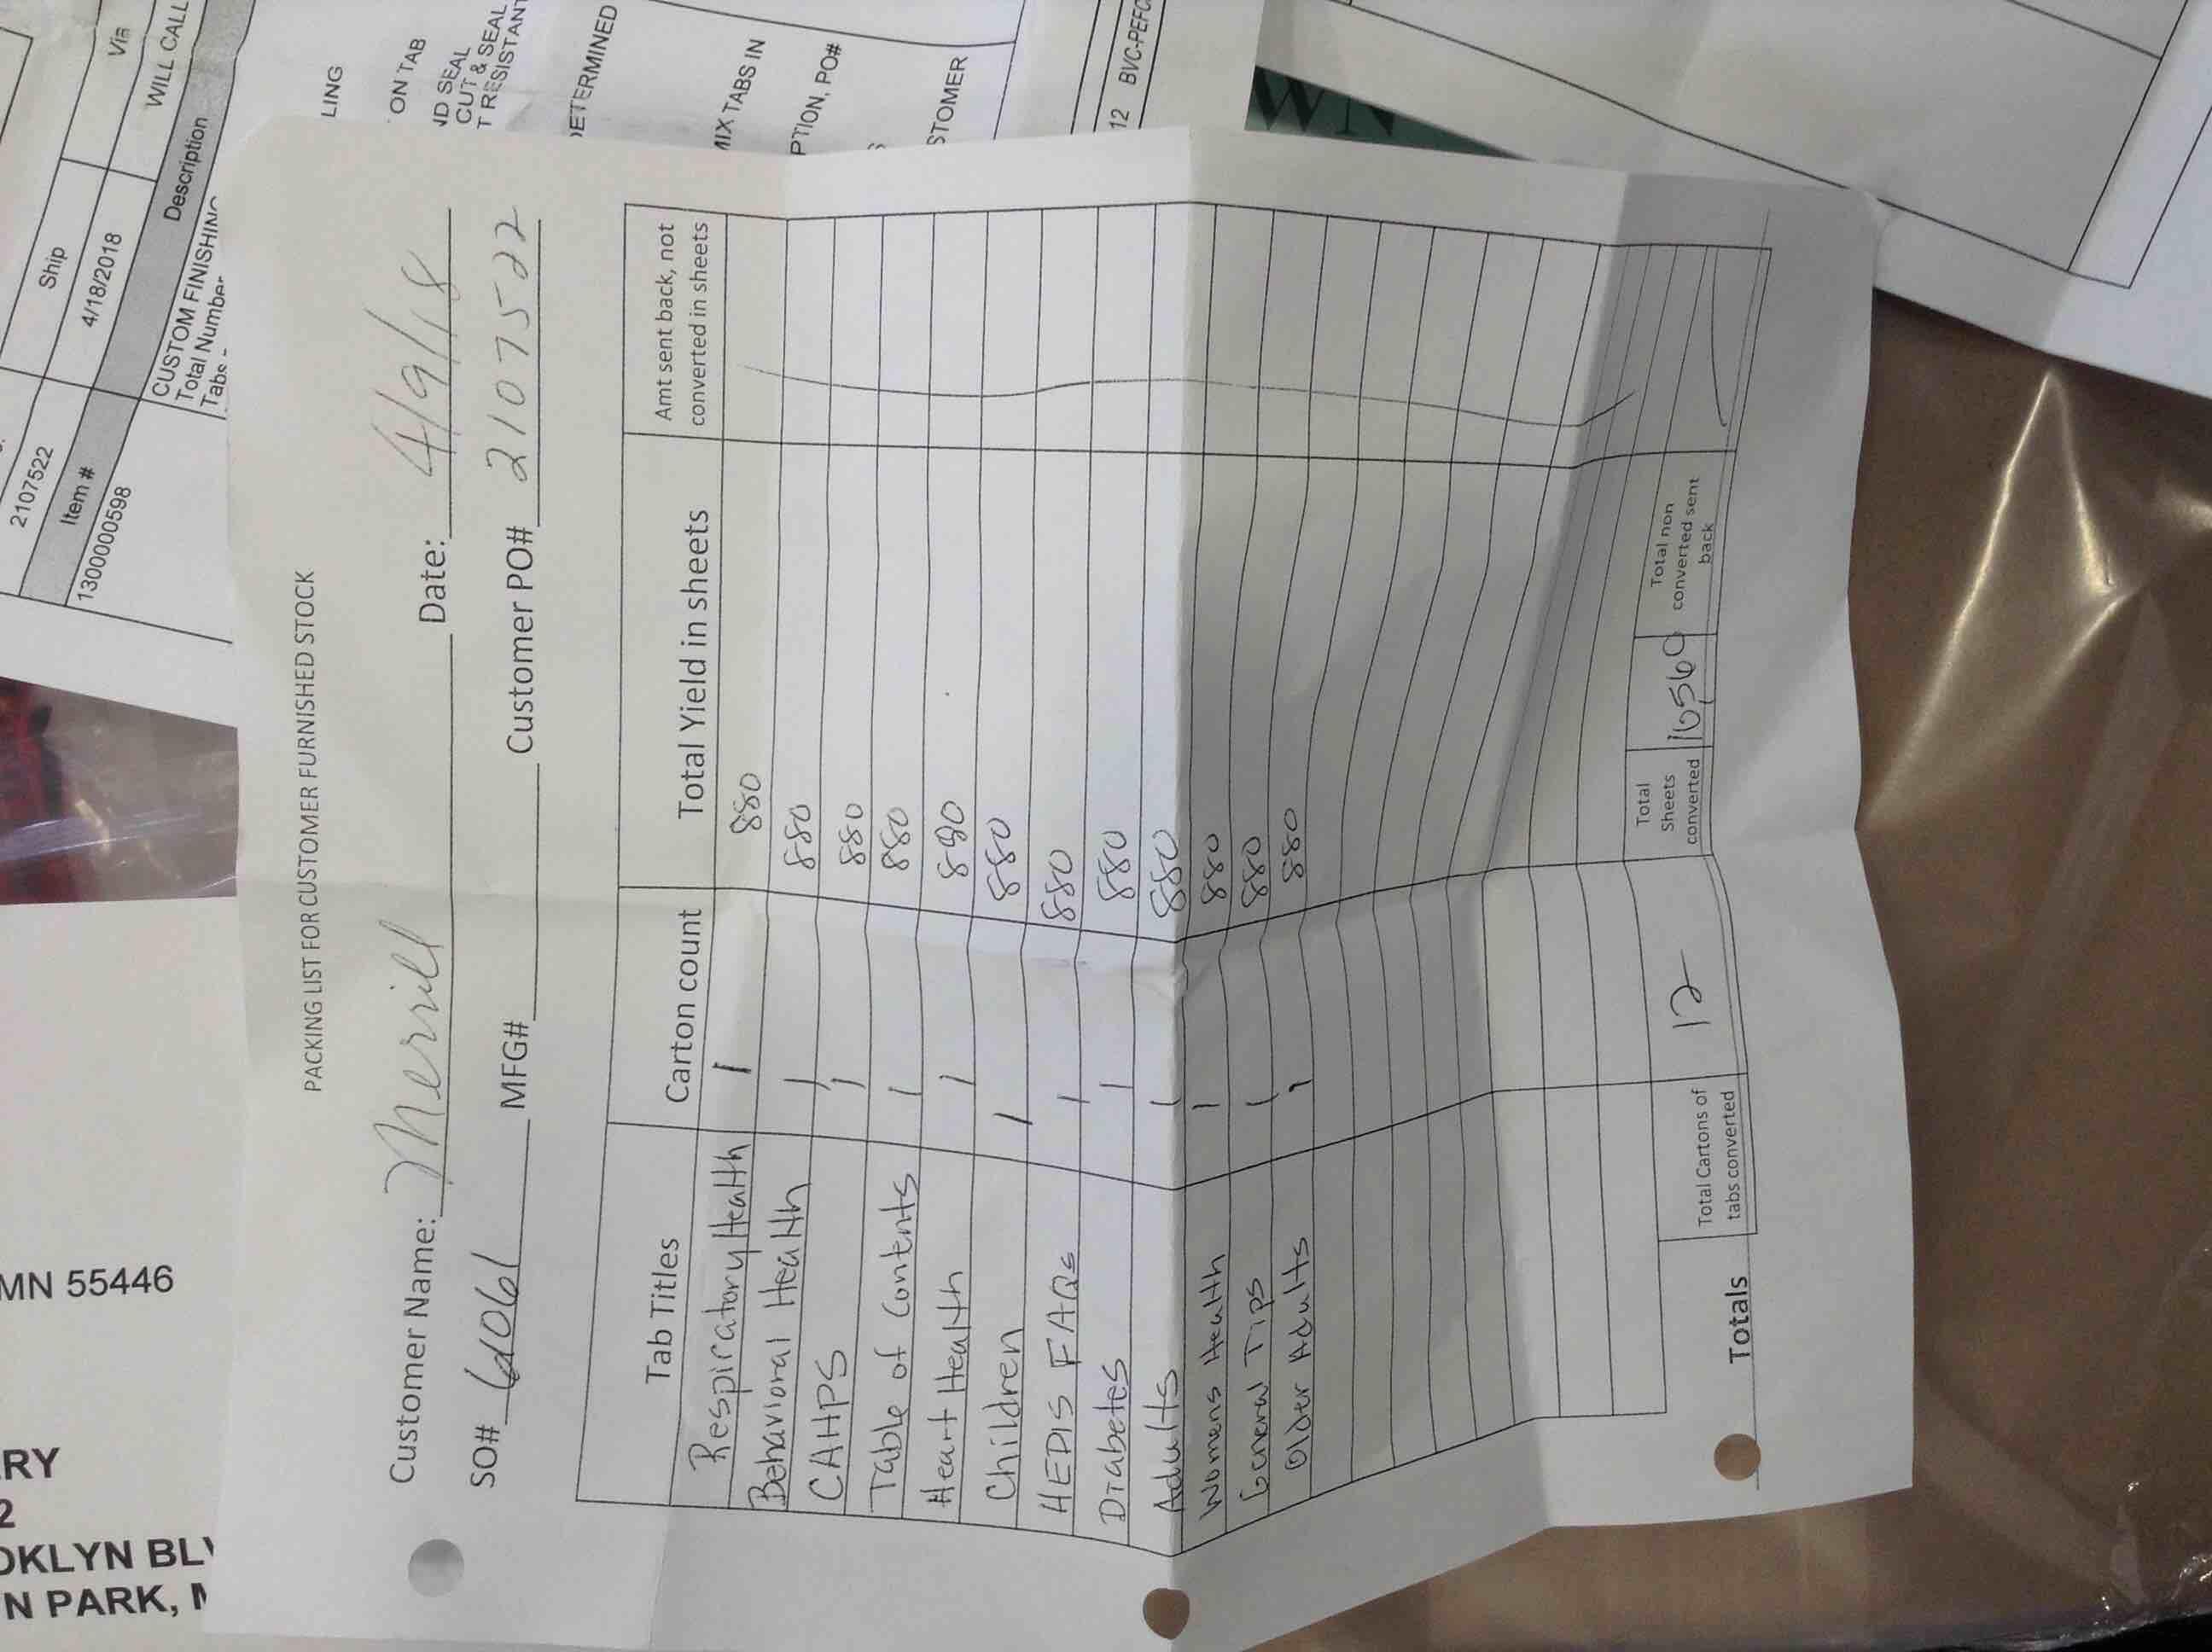 PACKING LIST FOR CUSTOMER FURNISHED STOCK
Customer Name: Merrill Date: 4/9/18
SO# 61061 MFG# Customer PO# 2107522
Tab Titles Carton count Total Yield in sheets Amt sent back, not converted in sheets
Respiratory Health 1 880
Behavioral Health 1 880
CAHPS 1 880
Table of Contents 1 880
Heart Health 1 880
Children 1 880
HEDIS FAQs 1 880
Diabetes 1 880
Adults 1 880
Womens Health 1 880
General Tips 1 880
Older Adults 1 880
Totals Total Cartons of tabs converted 12 Total Sheets converted 10,560 Total non converted sent back
2107522
Ship
Via
Item #
4/18/2018
WILL CALL
1300000598
Description
CUSTOM FINISHING
Total Number
Tabs -
LING
ON TAB
ND SEAL
CUT & SEAL
T RESISTANT
DETERMINED
MIX TABS IN
PTION, PO#
STOMER
12 BVC-PEFC
WN
MN 55446
RY
2
OKLYN BLV
N PARK, M